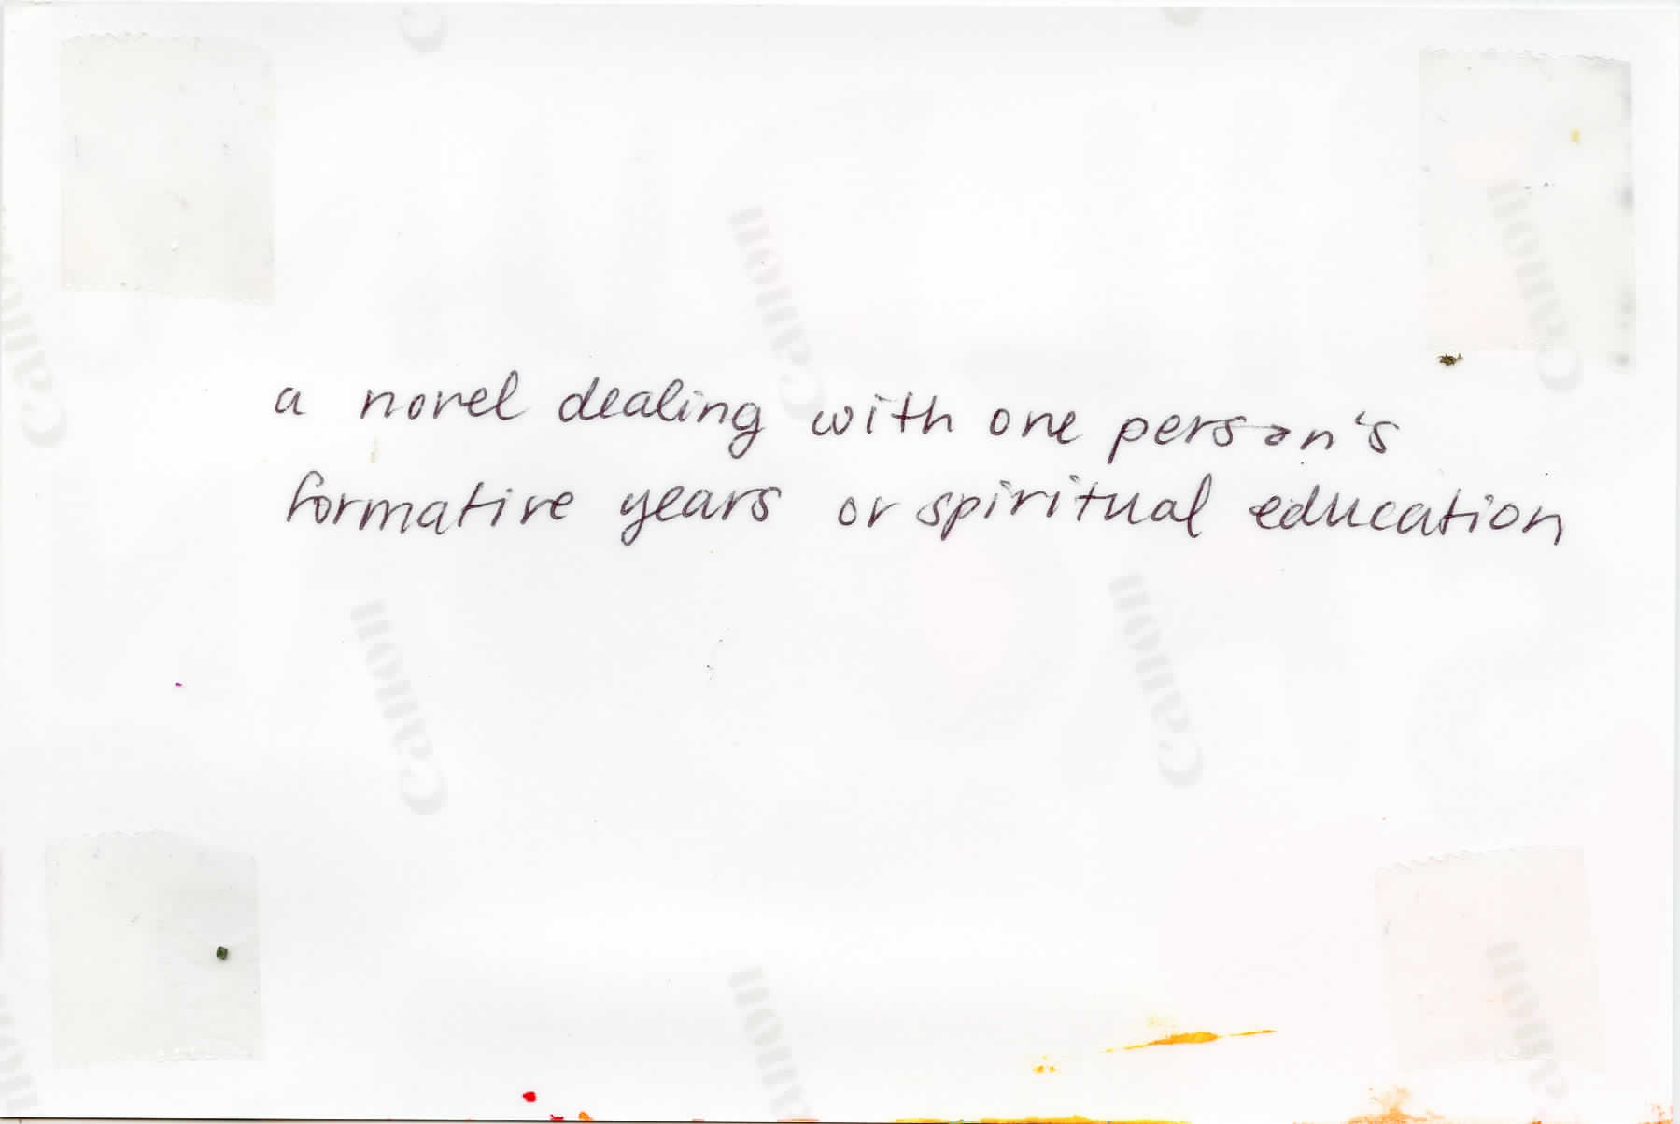 a novel dealing with one person's
formative years or spiritual education
Canon
Canon
Canon
Canon
Canon